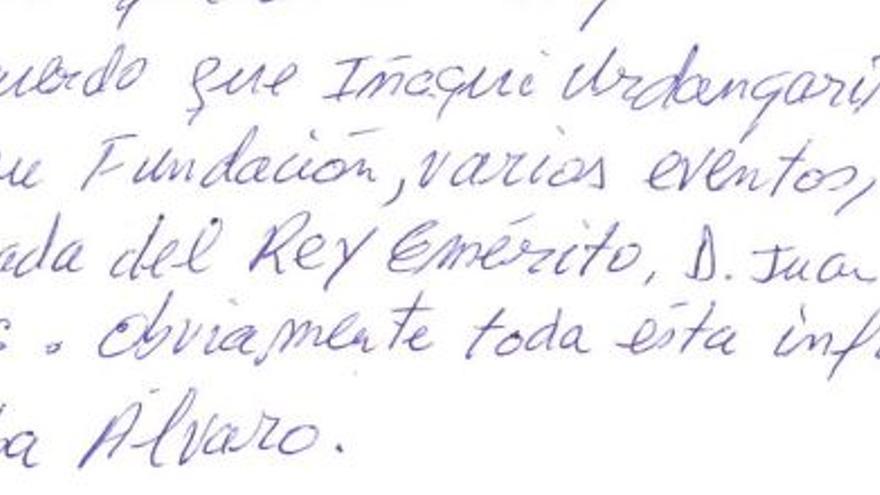 uerdo que Iñaqui Urdangari
Fundación, varios eventos,
ada del Rey Emérito, D. Juan
. Obviamente toda ésta inf
ba Álvaro.